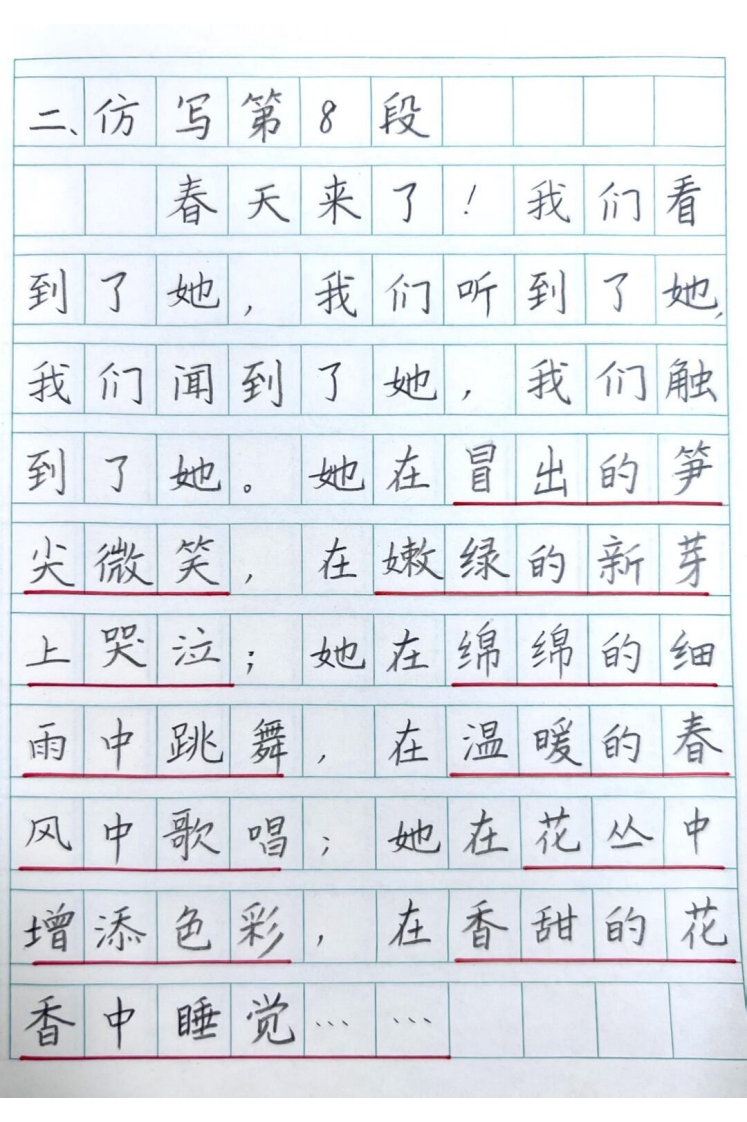 二、仿写第8段
春天来了！我们看
到了她，我们听到了她，
我们闻到了她，我们触
到了她。她在冒出的笋
尖微笑，在嫩绿的新芽
上哭泣；她在绵绵的细
雨中跳舞，在温暖的春
风中歌唱；她在花丛中
增添色彩，在香甜的花
香中睡觉……